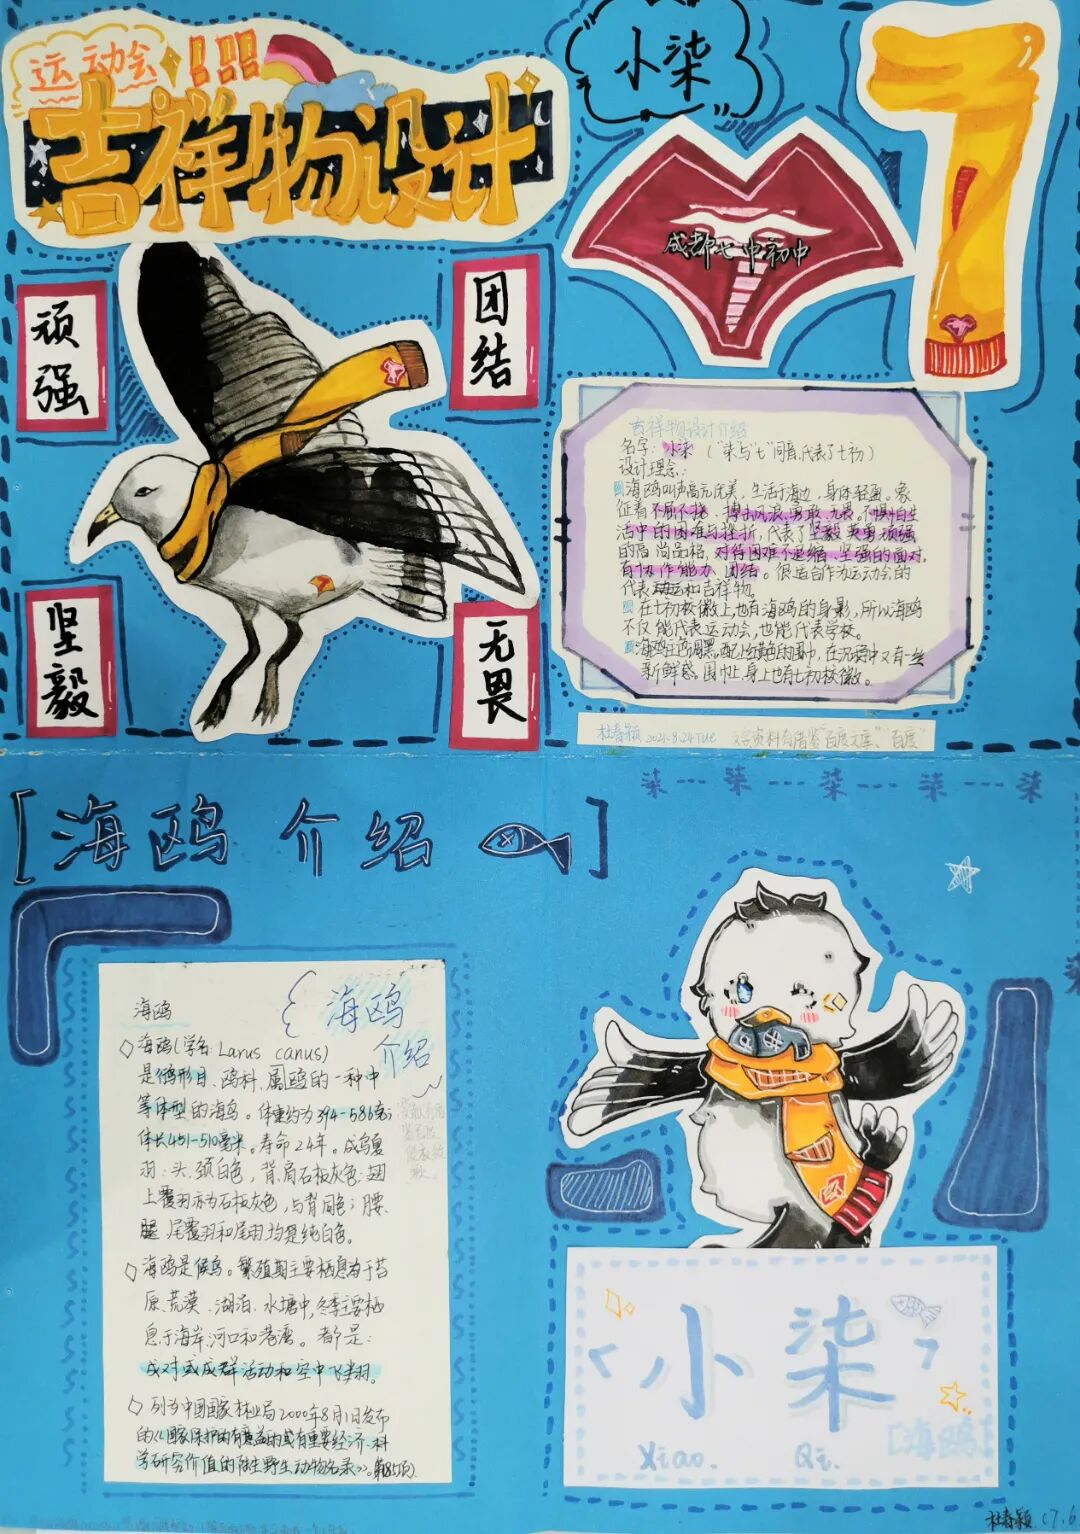 运动会!!!
吉祥物设计
小柒
7
成都七中初中
顽强
团结
坚毅
无畏
吉祥物设计介绍
名字: 小柒 ("柒"与"七"同音,代表了七初)
设计理念:
海鸥叫声高亢优美,生活于海边,身体轻盈。象
征着不屈不挠、搏击风浪、勇敢、无畏。不惧怕生
活中的困难与挫折,代表了坚毅 英勇 顽强
的高尚品格,对待困难不退缩、坚强的面对。
有协作能力、团结。很适合作为运动会的
代表 和吉祥物。
在七初校徽上也有海鸥的身影,所以海鸥
不仅能代表运动会,也能代表学校。
海鸥主色调黑,配上红黄色的围巾,在沉稳中又有一丝
新鲜感。围巾上、身上也有七初校徽。
杜春颖 2021.8.24 TUE 文字资料有借鉴"百度文库"、"百度"
[海鸥介绍]
柒---柒---柒---柒---柒
海鸥
海鸥介绍
海鸥(学名: Larus canus)
是鸻形目、鸥科、属鸥的一种中
等体型的海鸟。体重约为394-586克;
体长451-510毫米。寿命24年。成鸟夏
羽:头、颈白色,背、肩石板灰色;翅
上覆羽亦为石板灰色,与背同色;腰、
尾覆羽和尾羽均是纯白色。
海鸥是候鸟。繁殖期主要栖息于苔
原、荒漠、湖泊、水塘中,冬季主要栖
息于海岸、河口和港湾。都是:
成对或成群活动和空中飞翔。
列为中国国家林业局2000年8月1日发布
的《国家保护的有益的或有重要经济、科
学研究价值的陆生野生动物名录》。第85项.
<小柒>
Xiao. Qi.
[海鸥]
杜春颖 C7.6